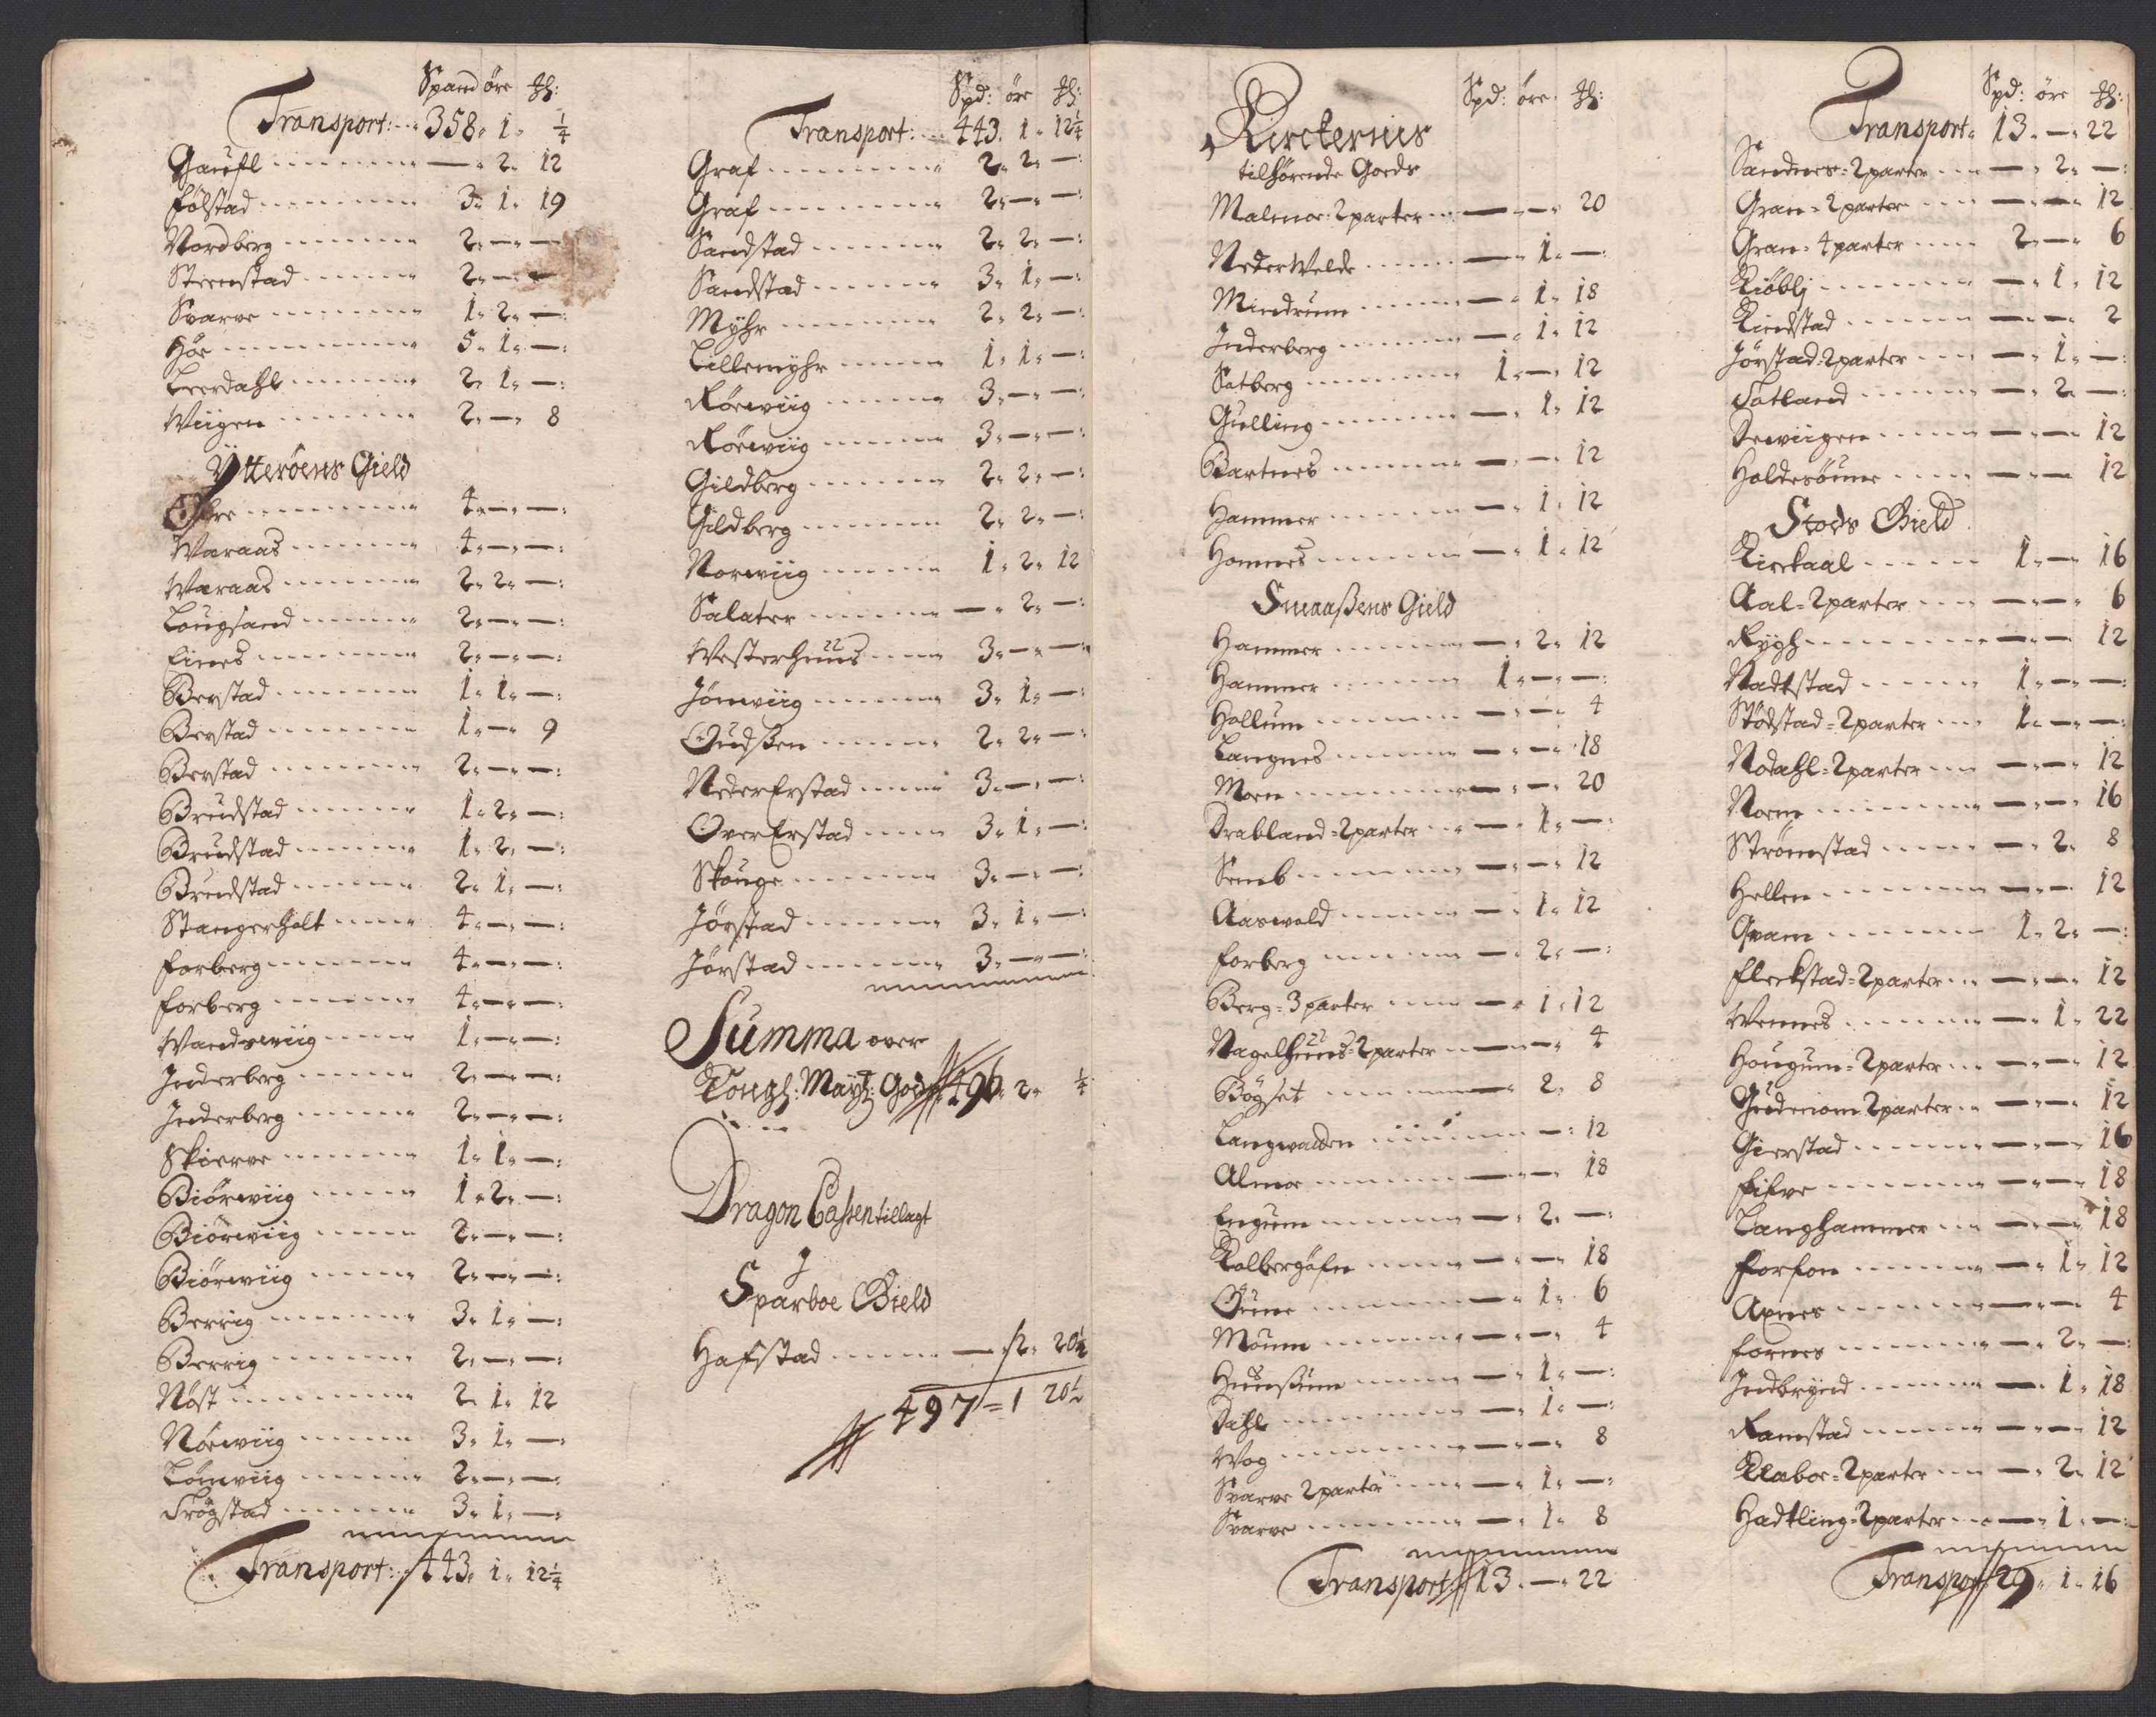 Spand öre
Transport: 358 1 ¼
Gaufl — 2 12
Følstad 3 1 19
Nordberg 2 — —
Steenstad 2 — —
Svarve 1 2 —
Hÿe 5 1 —
Leerdahl 2 1 —
Wiigen 2 — 8
Ÿtterøens Gield
4 — —
Waraas 4 — —
Waraas 2 2 —
Lougsand 2 — —
Eines 2 — —
Berstad 1 1 —
Berstad 1 — 9
Berstad 2 — —
Brudstad 1 2 —
Brudstad 1 2 —
Brudstad 2 1 —
Stangerholt 4 — —
Forberg 4 — —
Forberg 4 — —
Wandswiig 1 — —
Inderberg 2 — —
Inderberg 2 — —
Skierve 1 1 —
Biörwiig 1 2 —
Biörwiig 2 — —
Biörwiig 2 — —
Berrig 3 1 —
Berrig 2 — —
Nøst 2 1 12
Nörwiig 3 1 —
Lönwiig 2 — —
Trøgstad 3 1 —
Transport: 443 1 12¼
Spd: öre
Transport: 443 1 12¼
Graf 2 2 —
Graf 2 — —
Sandstad 2 2 —
Sandstad 3 1 —
Mÿhr 2 2 —
Lillemÿhr 1 1 —
Rörwiig 3 — —
Rörwiig 3 — —
Gildberg 2 2 —
Gildberg 2 2 —
Norwiig 1 2 12
Salater — 2 —
Westerhuus 3 — —
Jönwiig 3 1 —
Oudßen 2 2 —
Neder Erstad 3 — —
Over Erstad 3 1 —
Skouge 3 — —
Jörstad 3 1 —
Jörstad 3 — —
Summa over
Kongl: Maÿst: Gods 496 2 ¼
Dragon Cassen tillagt
J
Sparboe Gield
Hafstad — 2 20½
497 = 1 20½
Spd: öre
Kirckernes
tilhørende Goeds
Malmoe: 2parter — — 20
Neder Welde — 1 —
Mindrum — 1 18
Inderberg — 1 12
Satberg 1 — 12
Gulling — 1 12
Bartnes — — 12
Hammer — 1 12
Homnes — 1 12
Snaaßens Gield
Hammer — 2 12
Hammer 1 — —
Hollum — — 4
Langnes — — 18
Moen — — 20
Drabland = 2parter — 1 —
Semb — — 12
Aaswold — 1 12
Forberg — 2 —
Berg = 3parter — 1 12
Nagelhuus = 2parter — — 4
Bögset — 2 8
Langwadden — 12
Almoe — — 18
Engum — 2 —
Kolbergåfn — — 18
Oune — 1 6
Mounn — — 4
Huusßum — 1 —
Dahl — 1 —
Wog — — 8
Svarve 2parter — 1 —
Svarve — 1 8
Transport 13 — 22
Spd: öre
Transport 13 — 22
Sandnes: 2parter — 2 —
Gran = 2parter — — 12
Gran = 4parter 2 — 6
Kiöblj — 1 12
Kindstad — — 2
Jörstad: 2parter — 1 —
Fatland — 2 —
Drwiigen — — 12
Holdesöune — — 12
Stods Gield
Kirckaal 1 — 16
Aal = 2parter — — 6
Rÿgh — — 12
Nadtstad 1 — —
Stödstad = 2parter 1 — —
Nodahl = 2parter — — 12
Noem — — 16
Strömstad — 2 8
Hellem — — 12
Qvam 1 2 —
Fleckstad = 2parter — — 12
Wennes — 1 22
Hougum = 2parter — — 12
Gudenom 2parter — — 12
Gierstad — — 16
Fifve — — 18
Langhammer — — 18
Forfon — 1 12
Axnes — — 4
Fornes — 2 —
Indbrÿnd — 1 18
Ramstad — — 12
Klaboe = 2parter — 2 12
Hadtling = 2parter — 1 —
Transport 29 1 16